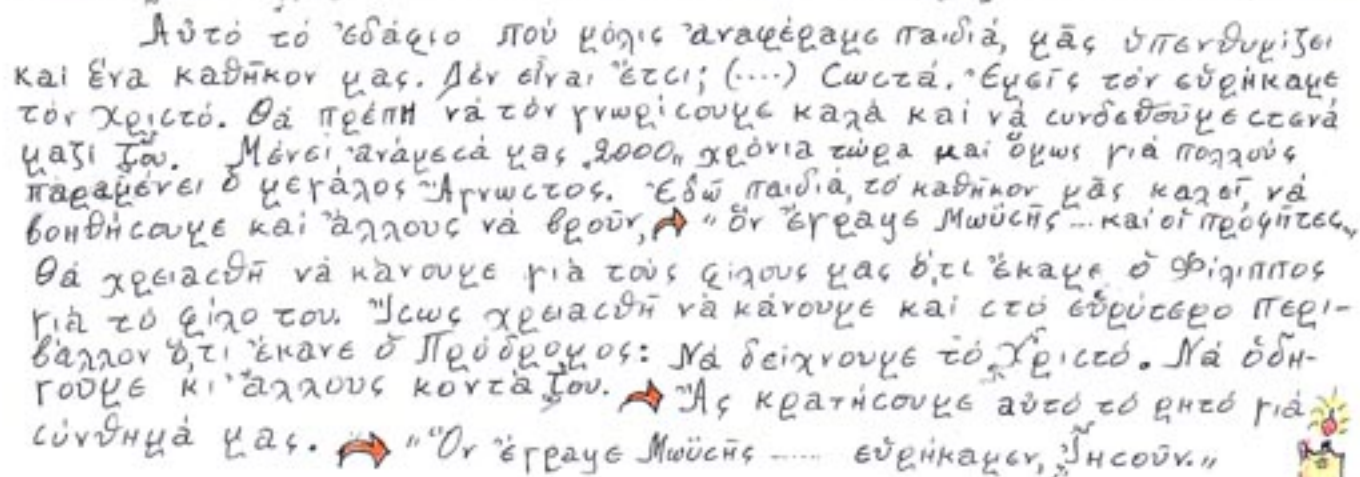 Αὐτό τό ἐδάφιο πού μόλις ἀναφέραμε παιδιά, μᾶς ὑπενθυμίζει
καί ἕνα καθῆκον μας. Δέν εἶναι ἔτσι; (....) Σωστά. Ἐμεῖς τόν εὑρήκαμε
τόν Χριστό. Θά πρέπη νά τόν γνωρίσουμε καλά καί νά συνδεθοῦμε στενά
μαζί Του. Μένει ἀνάμεσά μας „2000„ χρόνια τώρα καί ὅμως γιά πολλούς
παραμένει ὁ μεγάλος Ἄγνωστος. Ἐδῶ παιδιά, τό καθῆκον μᾶς καλεῖ, νά
βοηθήσουμε καί ἄλλους νά βροῦν, "Ὅν ἔγραψε Μωϋσῆς ... καί οἱ προφῆτες„
Θά χρειασθῆ νά κάνουμε γιά τούς φίλους μας ὅ,τι ἔκαμε ὁ Φίλιππος
γιά τό φίλο του. Ἴσως χρειασθῆ νά κάνουμε καί στό εὐρύτερο περι-
βάλλον ὅ,τι ἔκανε ὁ Πρόδρομος: Νά δείχνουμε τό Χριστό. Νά ὁδη-
γοῦμε κι' ἄλλους κοντά Του. Ἄς κρατήσουμε αὐτό τό ρητό γιά
σύνθημά μας. "Ὅν ἔγραψε Μωϋσῆς ...... εὑρήκαμεν, Ἰησοῦν.„